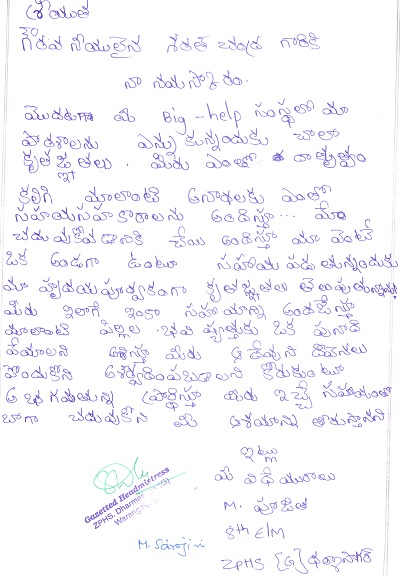 శ్రీయుత
గౌరవనీయులైన శరత్ చంద్ర గారికి
నా నమస్కారం.
మొదటగా మీ Big-help సంస్థలో మా
పాఠశాలను ఎన్ను కున్నందుకు చాలా
కృతజ్ఞతలు. మీరు ఎంతో దాతృత్వం
కలిగి మాలాంటి అనాధలకు ఎంతో
సహాయసహకారాలను అందిస్తూ... మేం
చదువుకోవడానికి చేయి అందిస్తూ మా వెంటే
ఒక అండగా ఉంటూ సహాయ పడుతున్నందుకు
మా హృదయపూర్వకంగా కృతజ్ఞతలు తెలుపుతున్నాను
మీరు ఇలాగే ఇంకా సహాయాన్ని అందజేస్తూ
మాలాంటి పిల్లల భవిష్యత్తుకు ఒక పునాది
వేయాలని ఆశిస్తూ మీరు ఆ దేవుని దీవెనలు
పొందుకోని ఆశీర్వదింపబడాలని కోరుకుంటూ
ఆ భగవంతున్ని ప్రార్థిస్తూ మీరు ఇచ్చే సహాయంతో
బాగా చదువుకోని మీ ఆశయాన్ని తీరుస్తానని
ఇట్లు
మీ విధేయురాలు
M. పూజిత
8th E/M
ZPHS (G)
Gazetted Headmistress
ZPHS, Dharmar
Warangal
M. Saroj